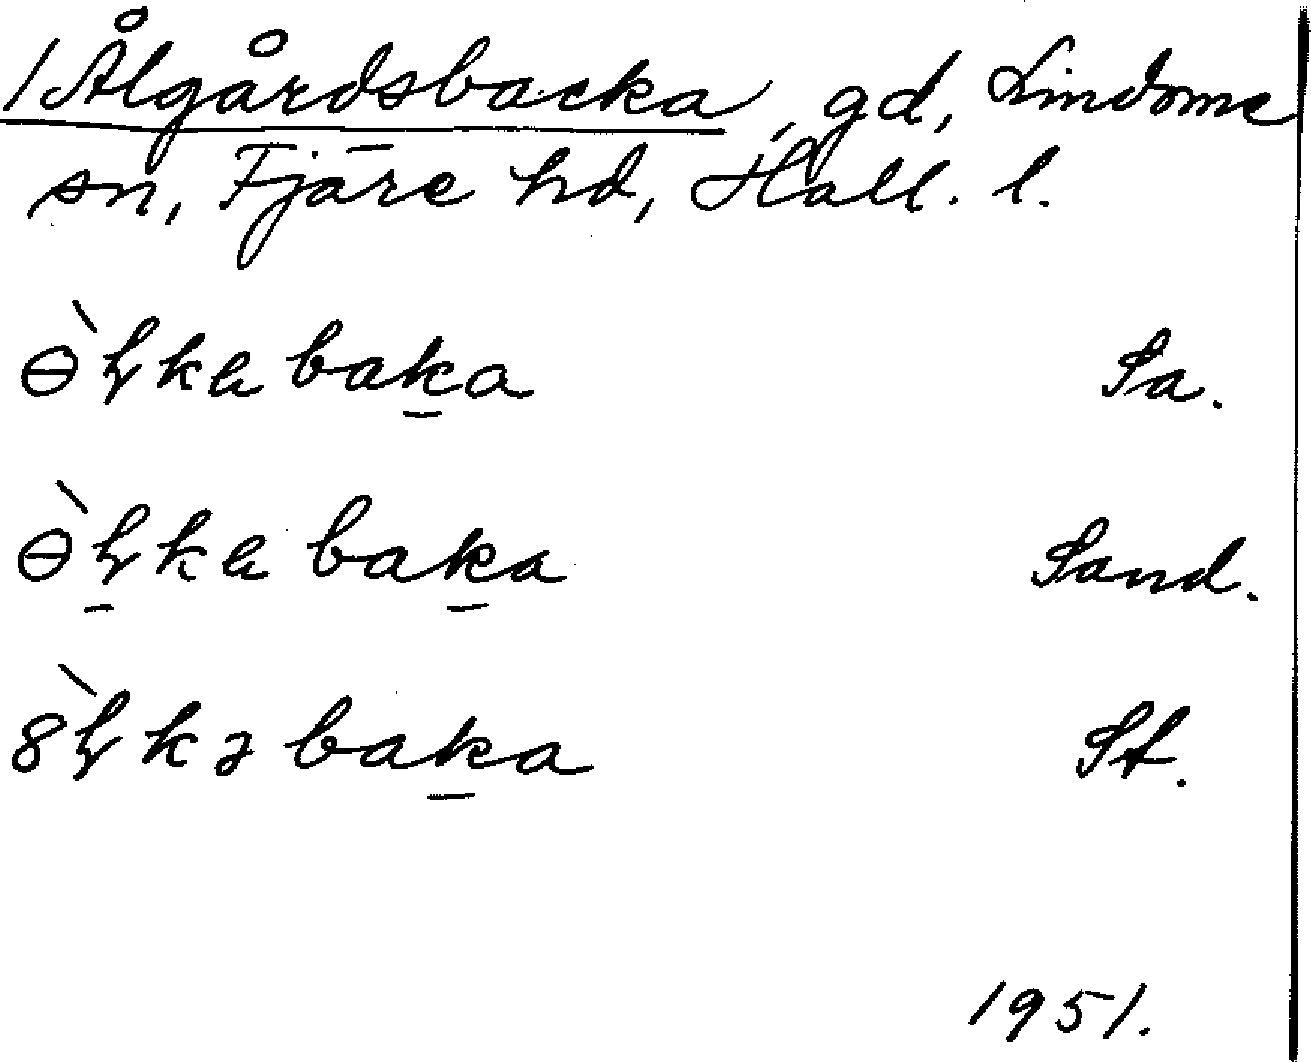 /Ålgårdsbacka, gd, Lindome
sn, Fjäre hd, Hall. l.
ɵ̀ɫkabak̲a Sa.
ɵ̀ɫ̲kabak̲a Sand.
8̀ɫkəbak̲a St.
1951.